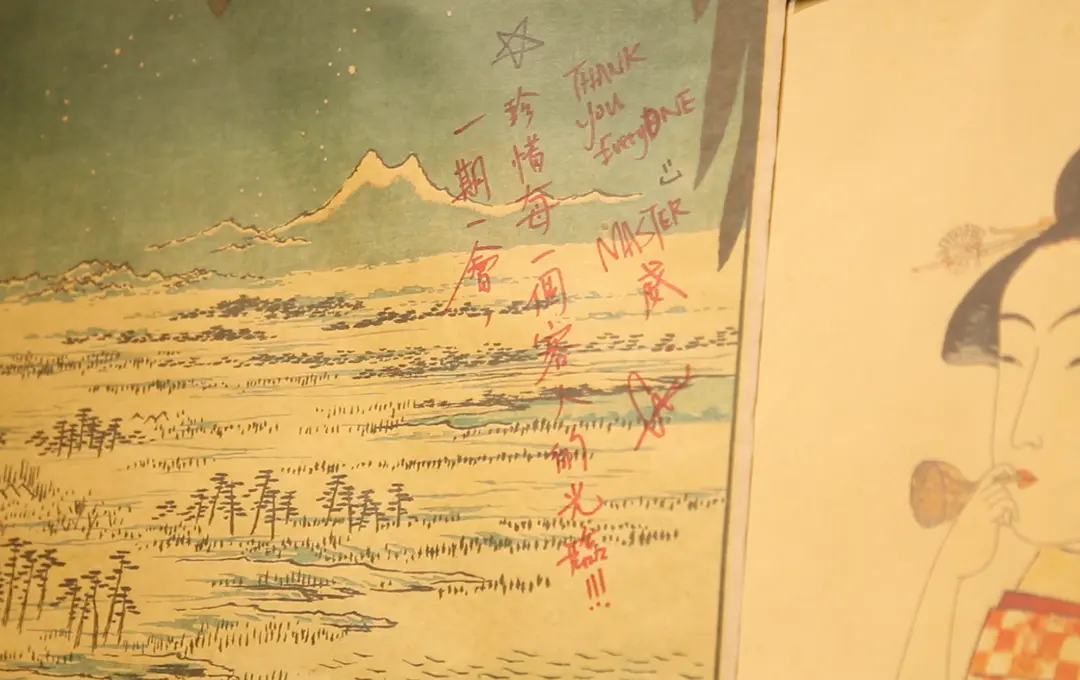 一期一會，
珍惜每一個客人的光臨!!!
THANK
you
EveryONE
MASTER
威